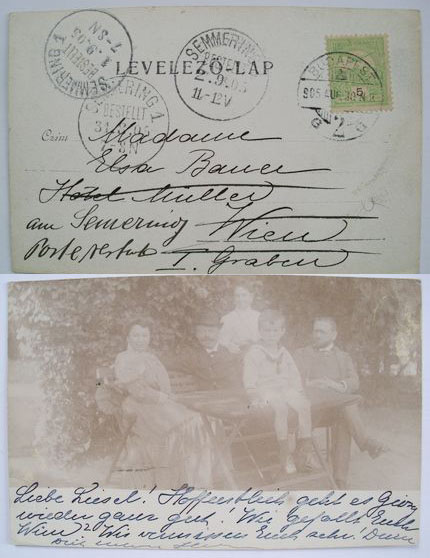 SEMMERING 1
BESTELLT
1.9.05
7-8N
SEMMERING
BESTELLT
2.9.05
11-12V
SEMMERING 1
BESTELLT
LEVELEZŐ-LAP
BUDAPEST
5
Czim
Madame
Elsa Bauer
Hotel Müller
am Semering Wien
Poste restante I. Graben
Liebe Liesel! Hoffentlich geht es
wieder ganz gut! Wie gefällt Euch
Wien? Wir vermissen Euch sehr! Denn